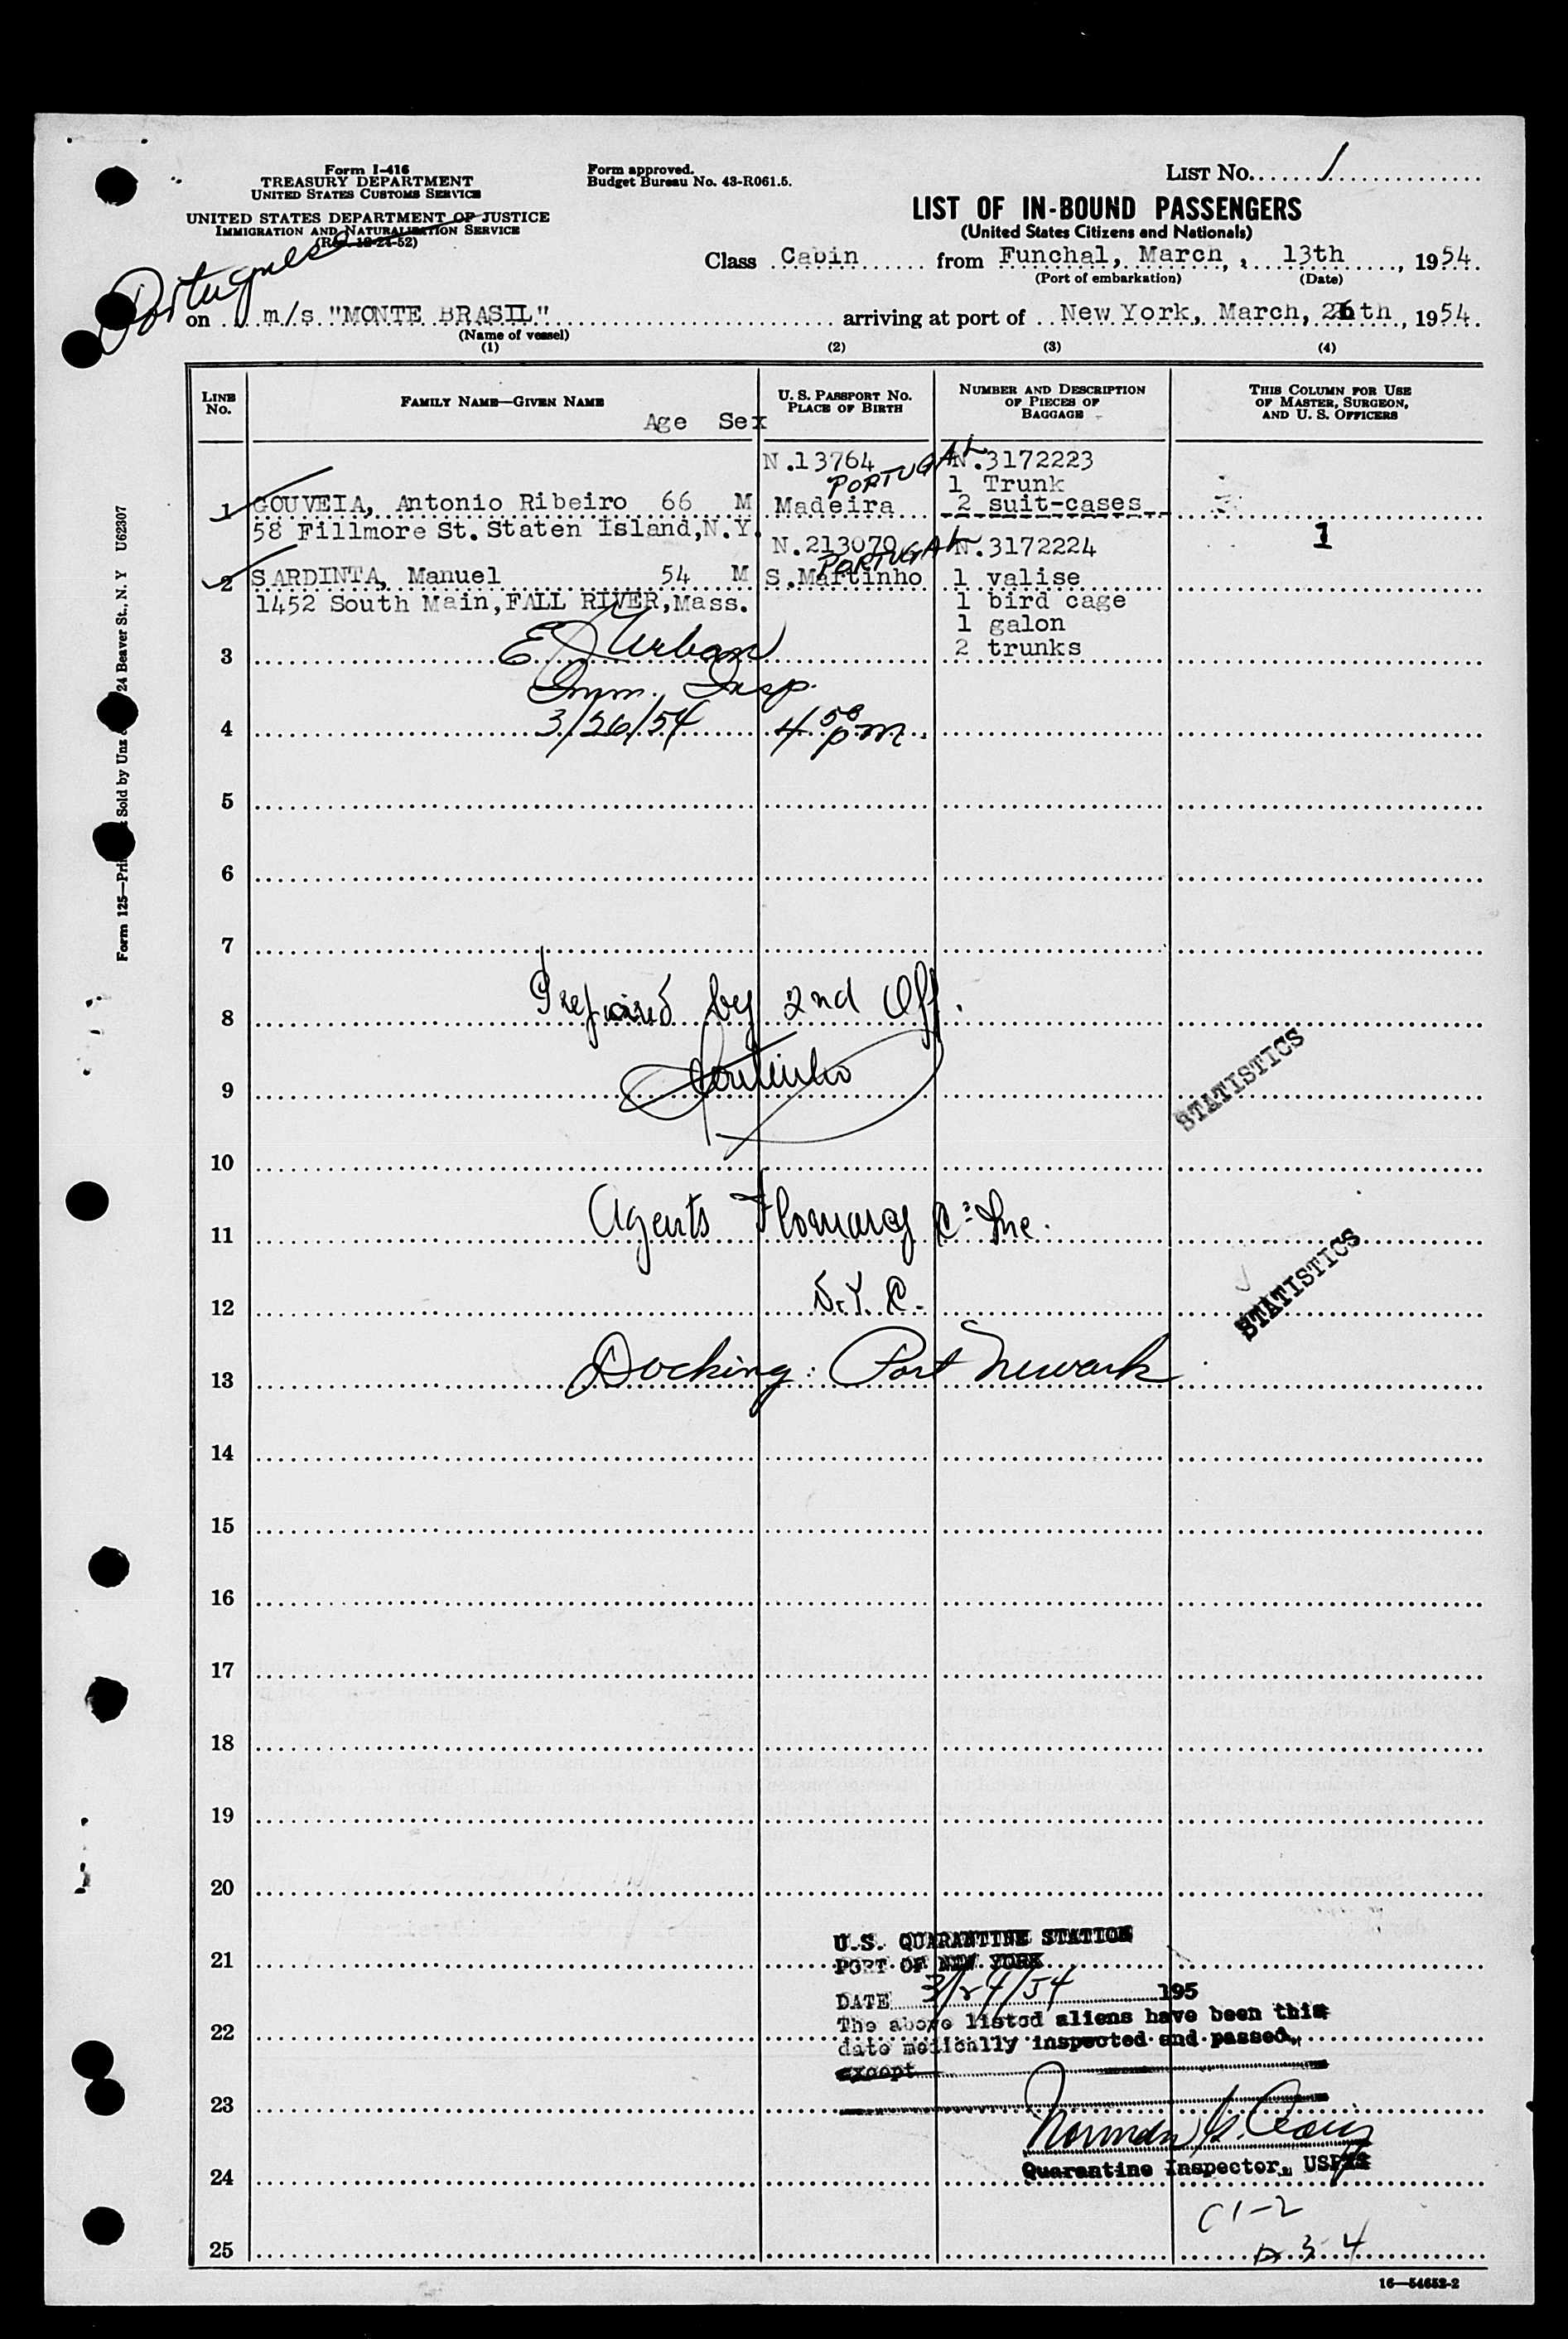 Form I-416
TREASURY DEPARTMENT
UNITED STATES CUSTOMS SERVICE
UNITED STATES DEPARTMENT OF JUSTICE
IMMIGRATION AND NATURALIZATION SERVICE
(Rev. 12-24-52)
Form approved.
Budget Bureau No. 43-R061.5.
LIST No. 1
LIST OF IN-BOUND PASSENGERS
(United States Citizens and Nationals)
Portuguese
Class Cabin from Funchal, March, 13th, 1954
(Port of embarkation) (Date)
on m/s "MONTE BRASIL" arriving at port of New York, March, 26th, 1954
(Name of vessel)
(1) (2) (3) (4)
LINE No.
FAMILY NAME—GIVEN NAME
Age Sex
U. S. PASSPORT No.
PLACE OF BIRTH
NUMBER AND DESCRIPTION
OF PIECES OF
BAGGAGE
THIS COLUMN FOR USE
OF MASTER, SURGEON,
AND U. S. OFFICERS
N.13764 N.3172223
PORTUGAL 1 Trunk
1 GOUVEIA, Antonio Ribeiro 66 M Madeira 2 suit-cases
58 Fillmore St. Staten Island, N.Y. 1
N.213070 N.3172224
PORTUGAL
2 SARDINTA, Manuel 54 M S.Martinho 1 valise
1452 South Main, FALL RIVER, Mass. 1 bird cage
1 galon
3 E. J. Urban 2 trunks
Imm. Insp.
4 3/26/54 4 50 pm.
5
6
7
8 Prepaired by 2nd Off.
9
10
11 Agents Inc.
12 N.Y.C.
13 Docking: Port Newark
14
15
16
17
18
19
20
21
22
23
24
25
STATISTICS
STATISTICS
U.S. QUARANTINE STATION
PORT OF NEW YORK
DATE 3/24/54 195
The above listed aliens have been this
date medically inspected and passed,
except
Norman G.
Quarantine Inspector, USPHS
C 1-2
D 3 4
16—54652-2
Form 125—Sold by Unz 24 Beaver St., N. Y U62307